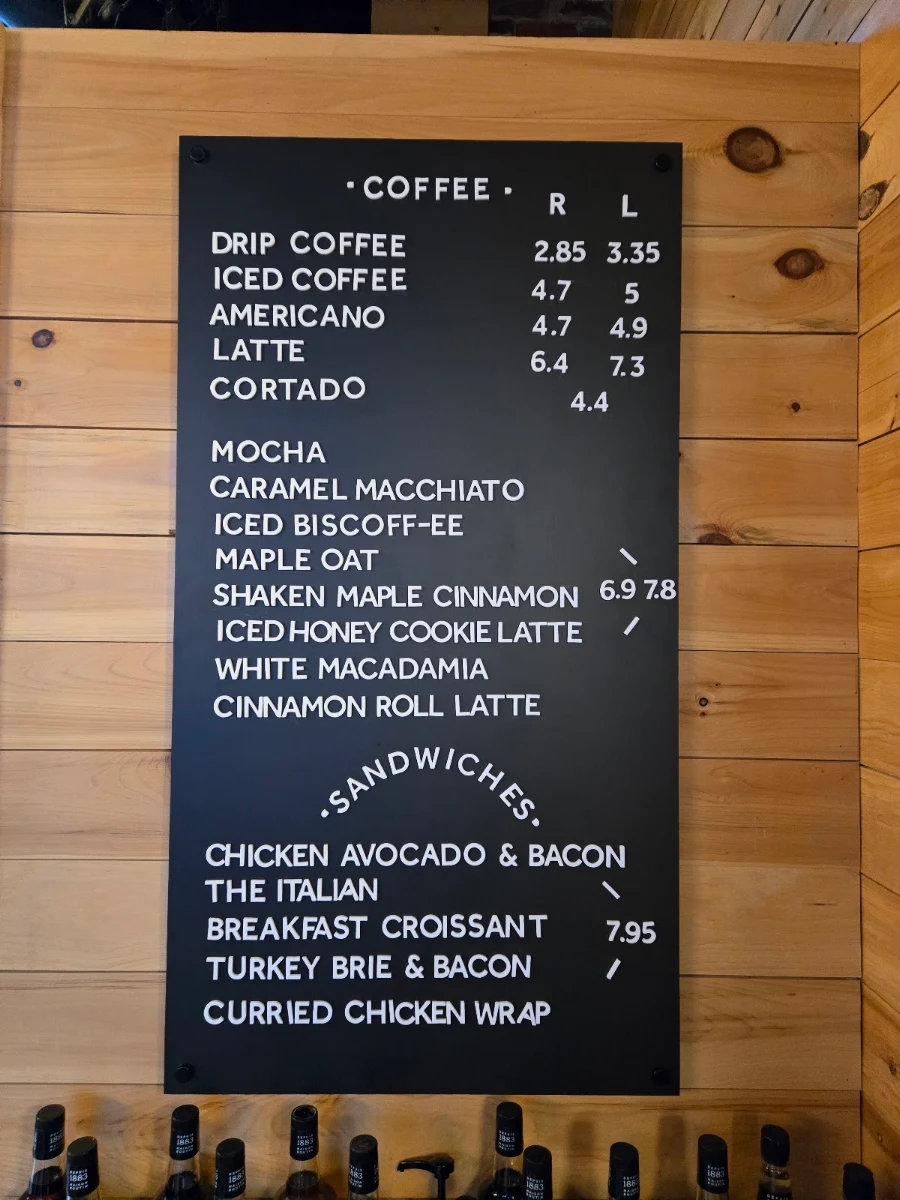 · COFFEE ·
R L
DRIP COFFEE 2.85 3.35
ICED COFFEE 4.7 5
AMERICANO 4.7 4.9
LATTE 6.4 7.3
CORTADO 4.4
MOCHA
CARAMEL MACCHIATO
ICED BISCOFF-EE
MAPLE OAT \
SHAKEN MAPLE CINNAMON 6.9 7.8
ICED HONEY COOKIE LATTE /
WHITE MACADAMIA
CINNAMON ROLL LATTE
·SANDWICHES·
CHICKEN AVOCADO & BACON
THE ITALIAN \
BREAKFAST CROISSANT 7.95
TURKEY BRIE & BACON /
CURRIED CHICKEN WRAP
1883
1883
1883
1883
1883
1883
1883
1883
1883